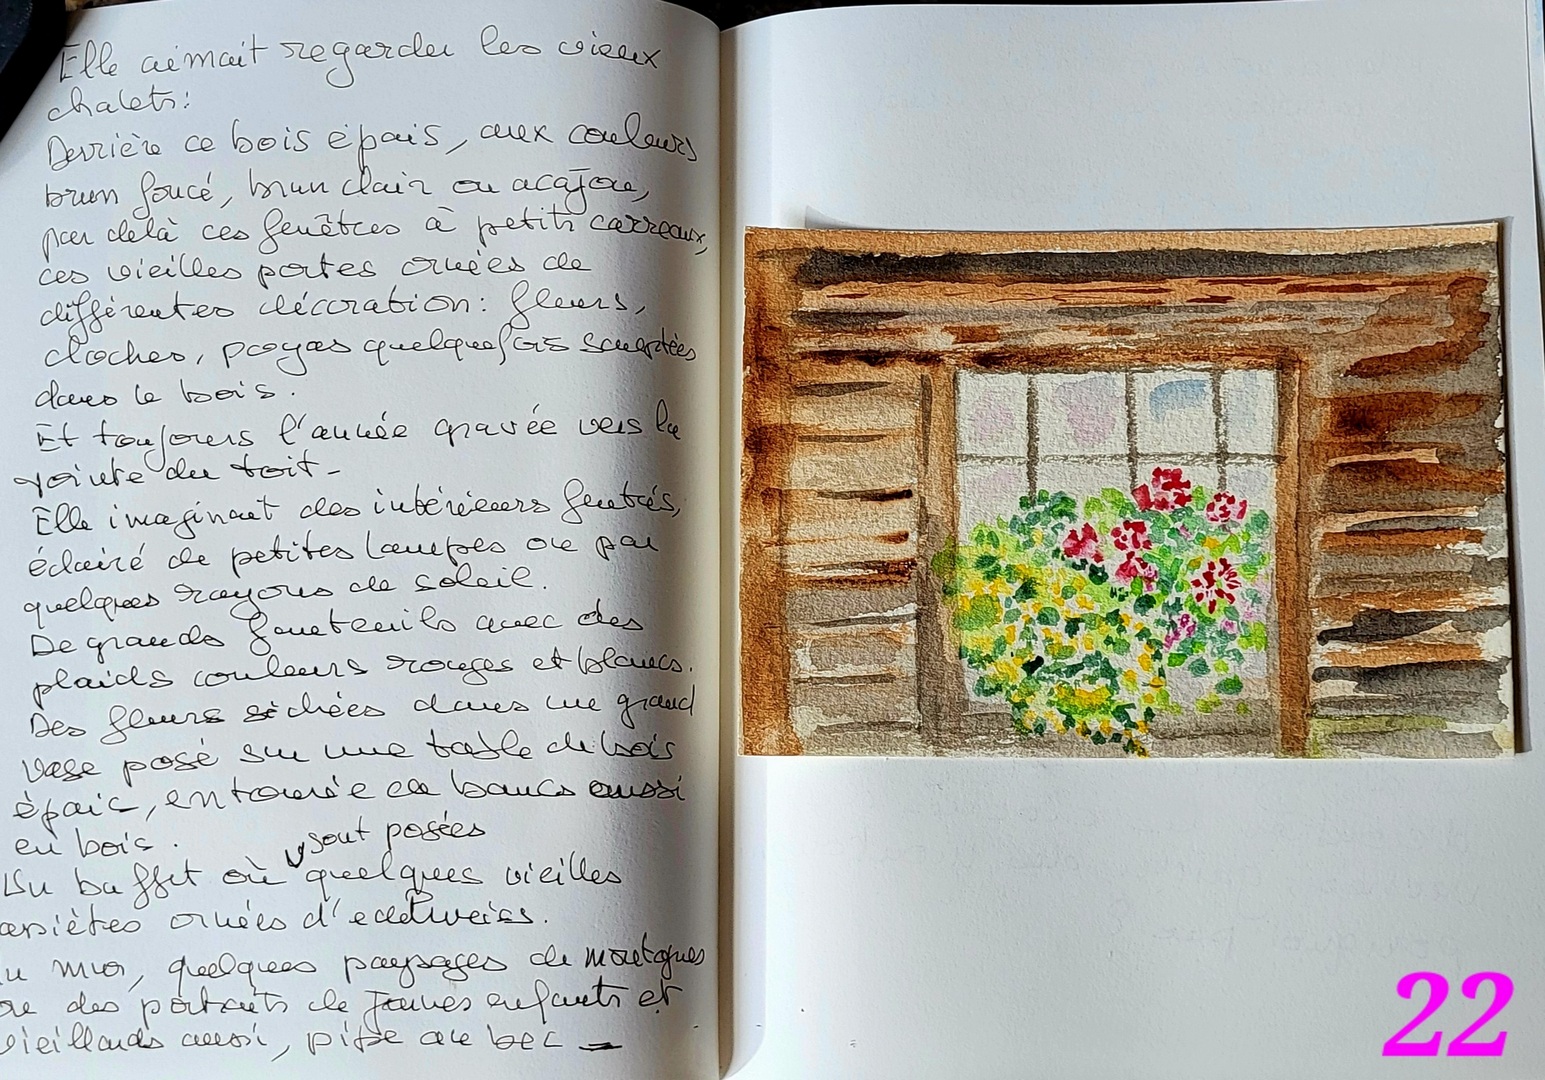 Elle aimait regarder les vieux
chalets:
Derrière ce bois épais, aux couleurs
brun foncé, brun clair ou acajou,
par delà ces fenêtres à petits carreaux,
ces vieilles portes ornées de
différentes décoration: fleurs,
cloches, poyas quelquefois sculptées
dans le bois.
Et toujours l'année gravée vers la
pointe du toit-
Elle imaginait des intérieurs feutrés,
éclairé de petites lampes ou par
quelques rayons de soleil.
De grands fauteuils avec des
plaids couleurs rouges et blancs.
Des fleurs séchées dans un grand
vase posé sur une table de bois
épais, entourée de bancs aussi
en bois.
sont posées
Un buffet où quelques vieilles
assiètes ornées d'edelweiss.
Au mur, quelques paysages de montagnes
ou des portraits de jeunes enfants et
vieillards aussi, pipe au bec -
22